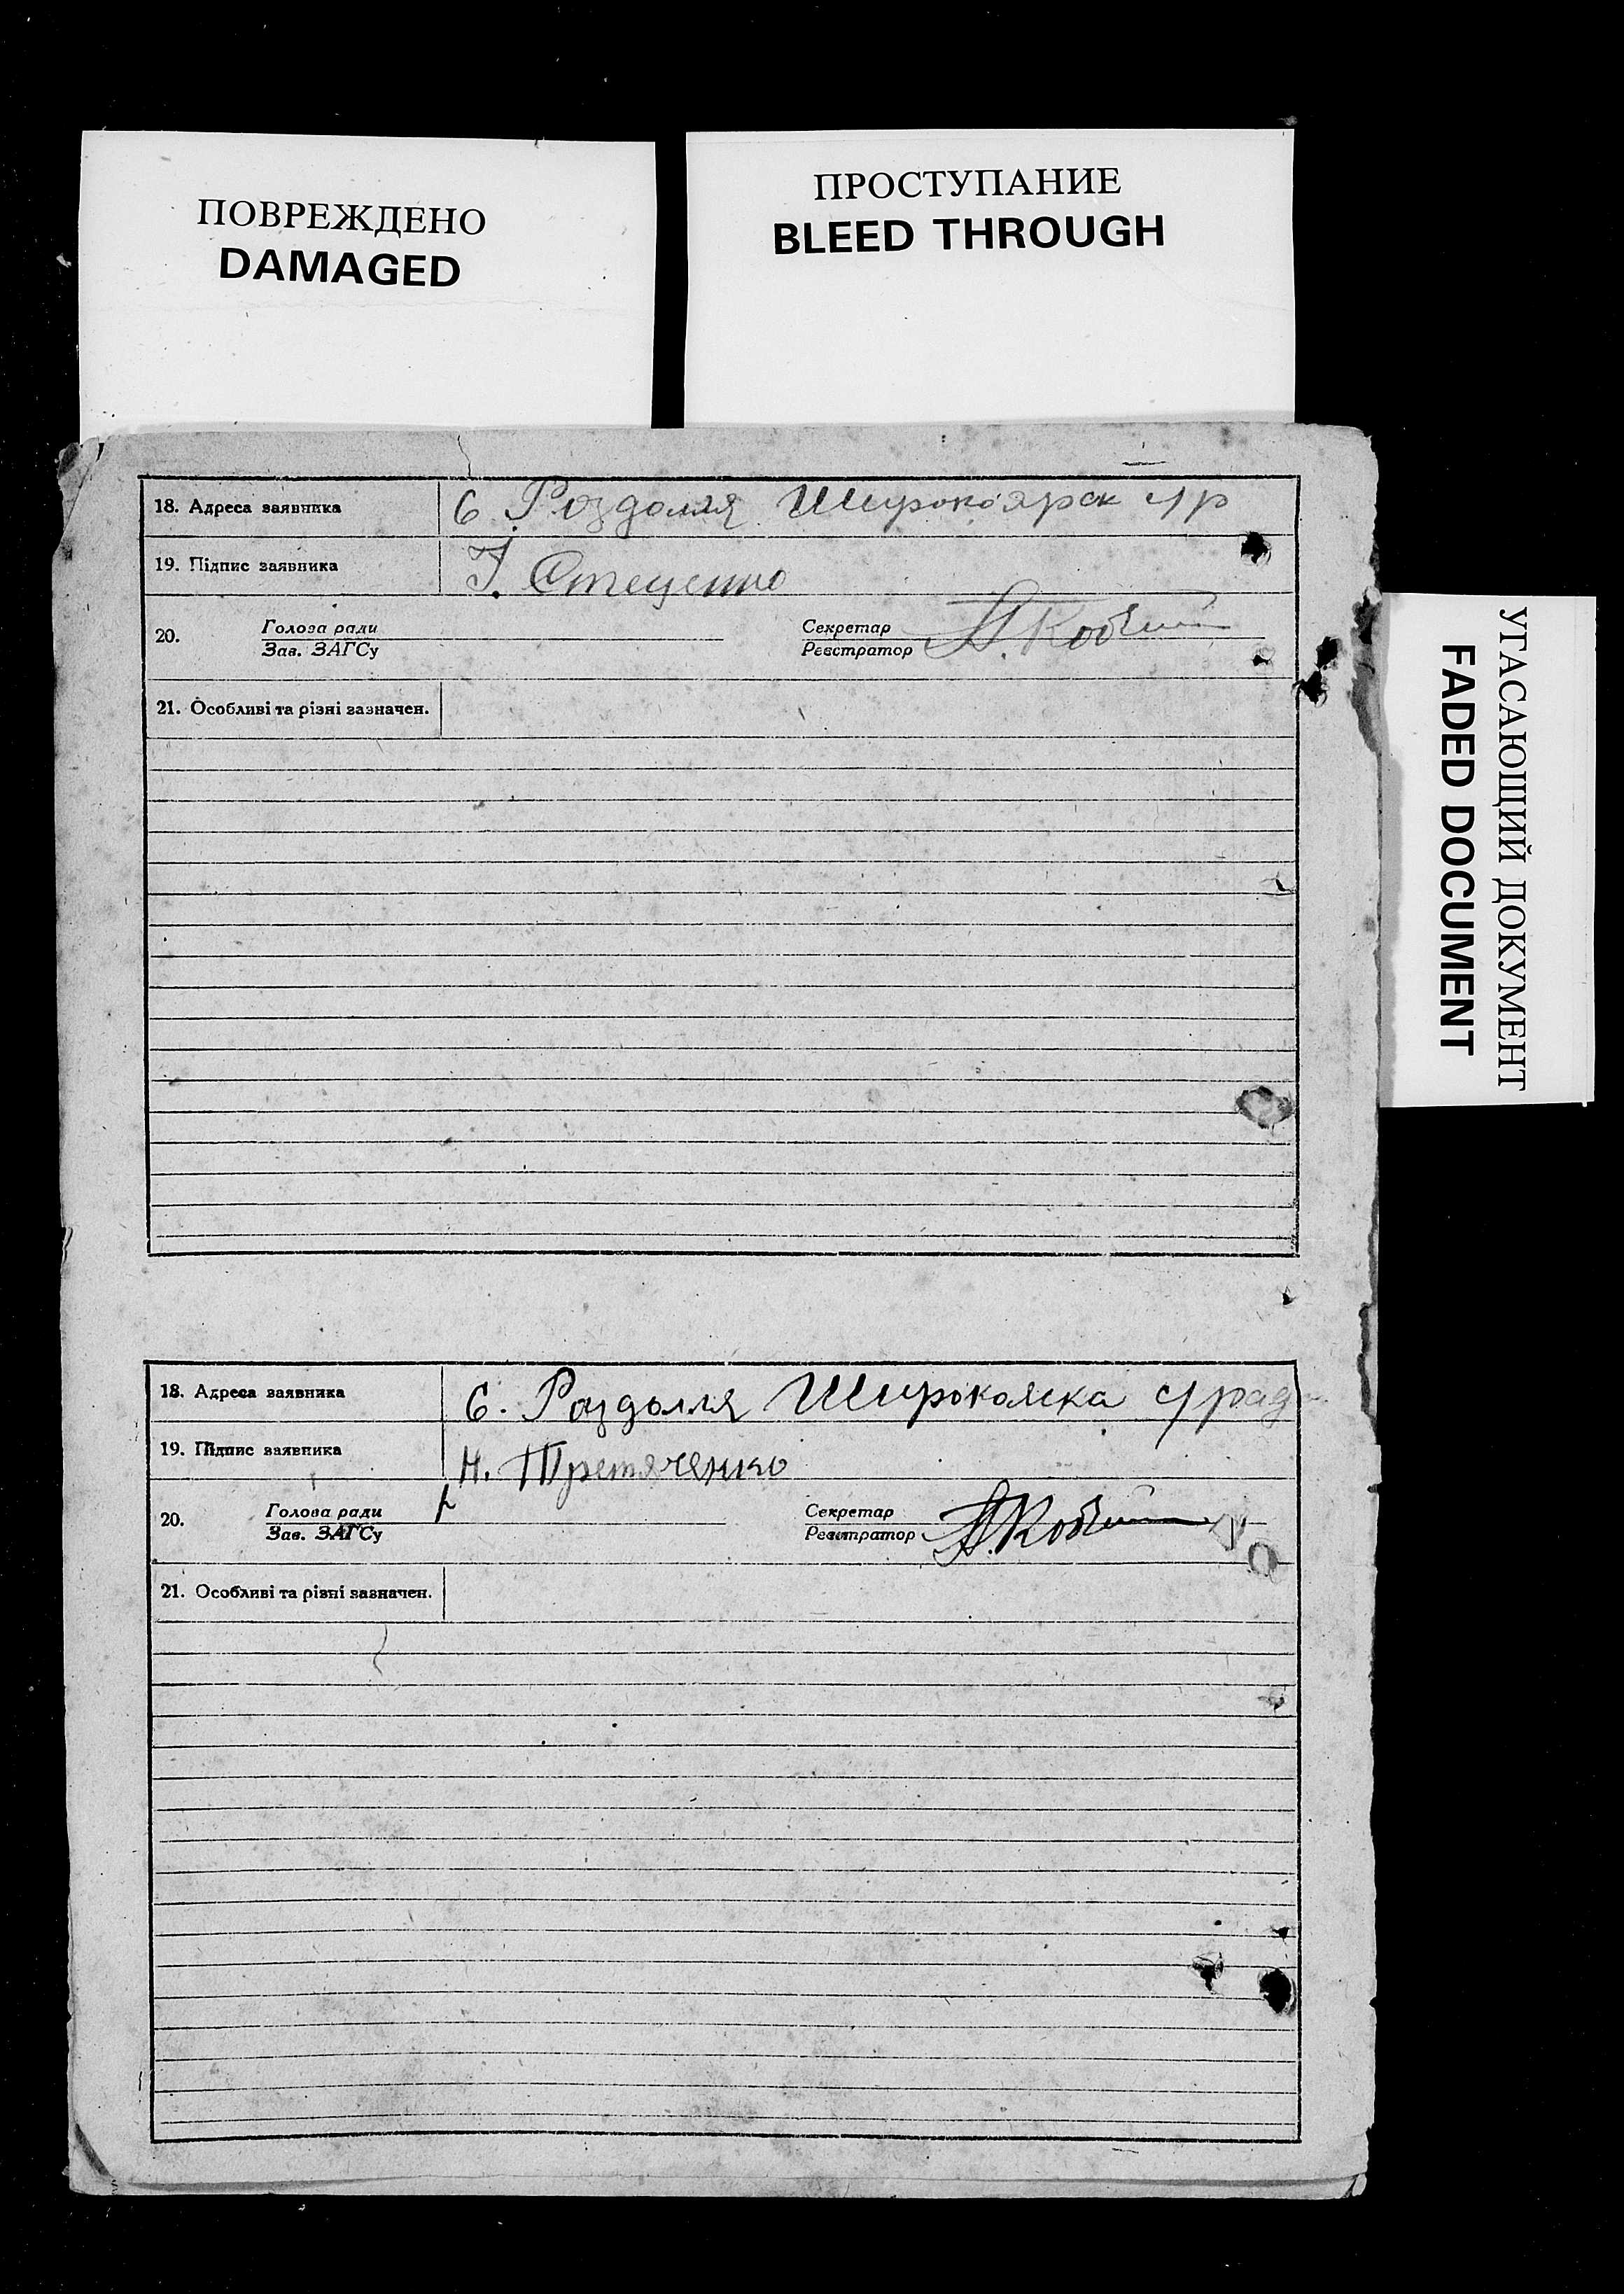 ПОВРЕЖДЕНО
DAMAGED
ПРОСТУПАНИЕ
BLEED THROUGH
УГАСАЮЩИЙ ДОКУМЕНТ
FADED DOCUMENT
18. Адреса заявника С. Роздолля Широкоярск с/р
19. Підпис заявника І. Стеценко
20. Голова ради Секретар
Зав. ЗАГСу Реєстратор
21. Особливі та різні зазначен.
18. Адреса заявника С. Роздолля с/рад
19. Підпис заявника Н. Третяченко
20. Голова ради Секретар
Зав. ЗАГСу Реєстратор
21. Особливі та різні зазначен.